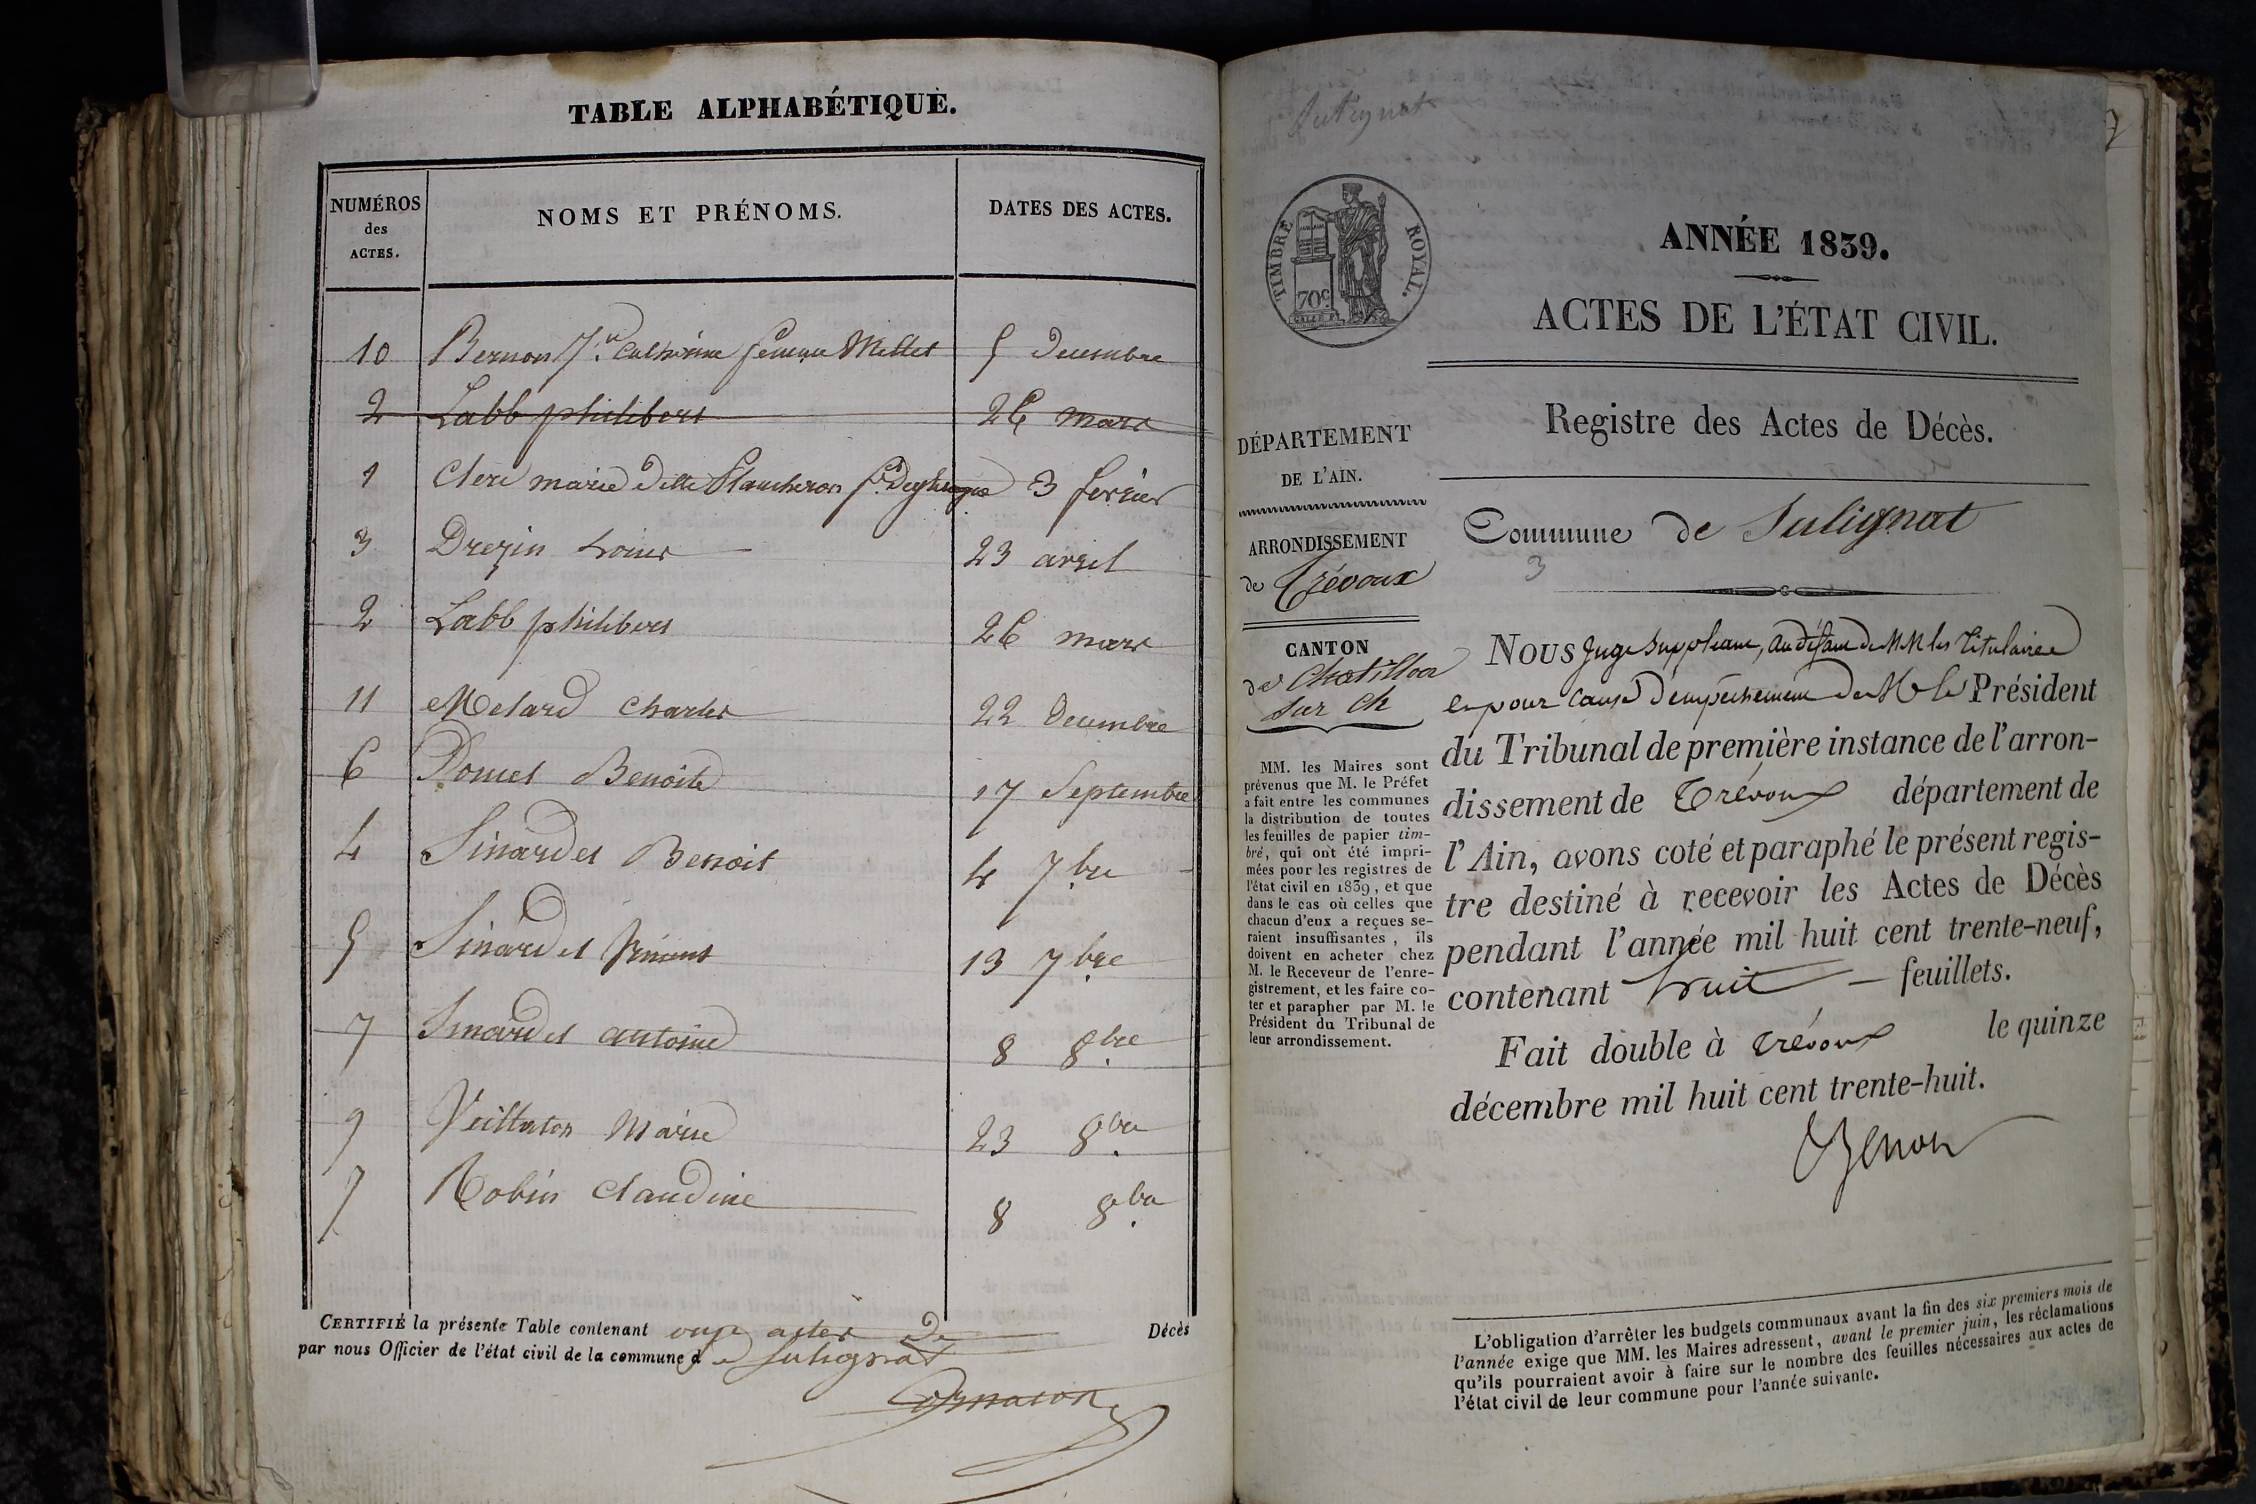 TABLE ALPHABÉTIQUE.
NUMÉROS des ACTES.
NOMS ET PRÉNOMS.
DATES DES ACTES.
10 Bernon Catherine femme Millet 5 decembre
2 Labb philibert 26 mars
1 Clerc marie dite Plancheron 3 fevrier
3 Drezin Louis 23 avril
2 Labb philibert 26 mars
11 Melard Charles 22 Decembre
6 Pomet Benoite 17 Septembre
4 Sinardet Benoit 4 7.bre
5 Sinardet 13 7.bre
7 Sinardet antoine 8 8.bre
9 Marie 23 8.bre
7 Robin Claudine 8 8.bre
CERTIFIÉ la présente Table contenant onze actes de Décès
par nous Officier de l'état civil de la commune de Sulignat
Sulignat
TIMBRE ROYAL.
70c
ANNÉE 1839.
ACTES DE L'ÉTAT CIVIL.
Registre des Actes de Décès.
DÉPARTEMENT
DE L'AIN.
ARRONDISSEMENT
de Trévoux
CANTON
de Chatillon
sur Ch
MM. les Maires sont
prévenus que M. le Préfet
a fait entre les communes
la distribution de toutes
les feuilles de papier tim-
bré, qui ont été impri-
mées pour les registres de
l'état civil en 1839, et que
dans le cas où celles que
chacun d'eux a reçues se-
raient insuffisantes, ils
doivent en acheter chez
M. le Receveur de l'enre-
gistrement, et les faire co-
ter et parapher par M. le
Président du Tribunal de
leur arrondissement.
Commune de Sulignat
3
NOUS Juge Suppléant, au défaut de MM les Titulaires
et pour cause d'empêchement de M le Président
du Tribunal de première instance de l'arron-
dissement de Trévoux département de
l'Ain, avons coté et paraphé le présent regis-
tre destiné à recevoir les Actes de Décès
pendant l'année mil huit cent trente-neuf,
contenant huit feuillets.
Fait double à Trévoux le quinze
décembre mil huit cent trente-huit.
L'obligation d'arrêter les budgets communaux avant la fin des six premiers mois de
l'année exige que MM. les Maires adressent, avant le premier juin, les réclamations
qu'ils pourraient avoir à faire sur le nombre des feuilles nécessaires aux actes de
l'état civil de leur commune pour l'année suivante.